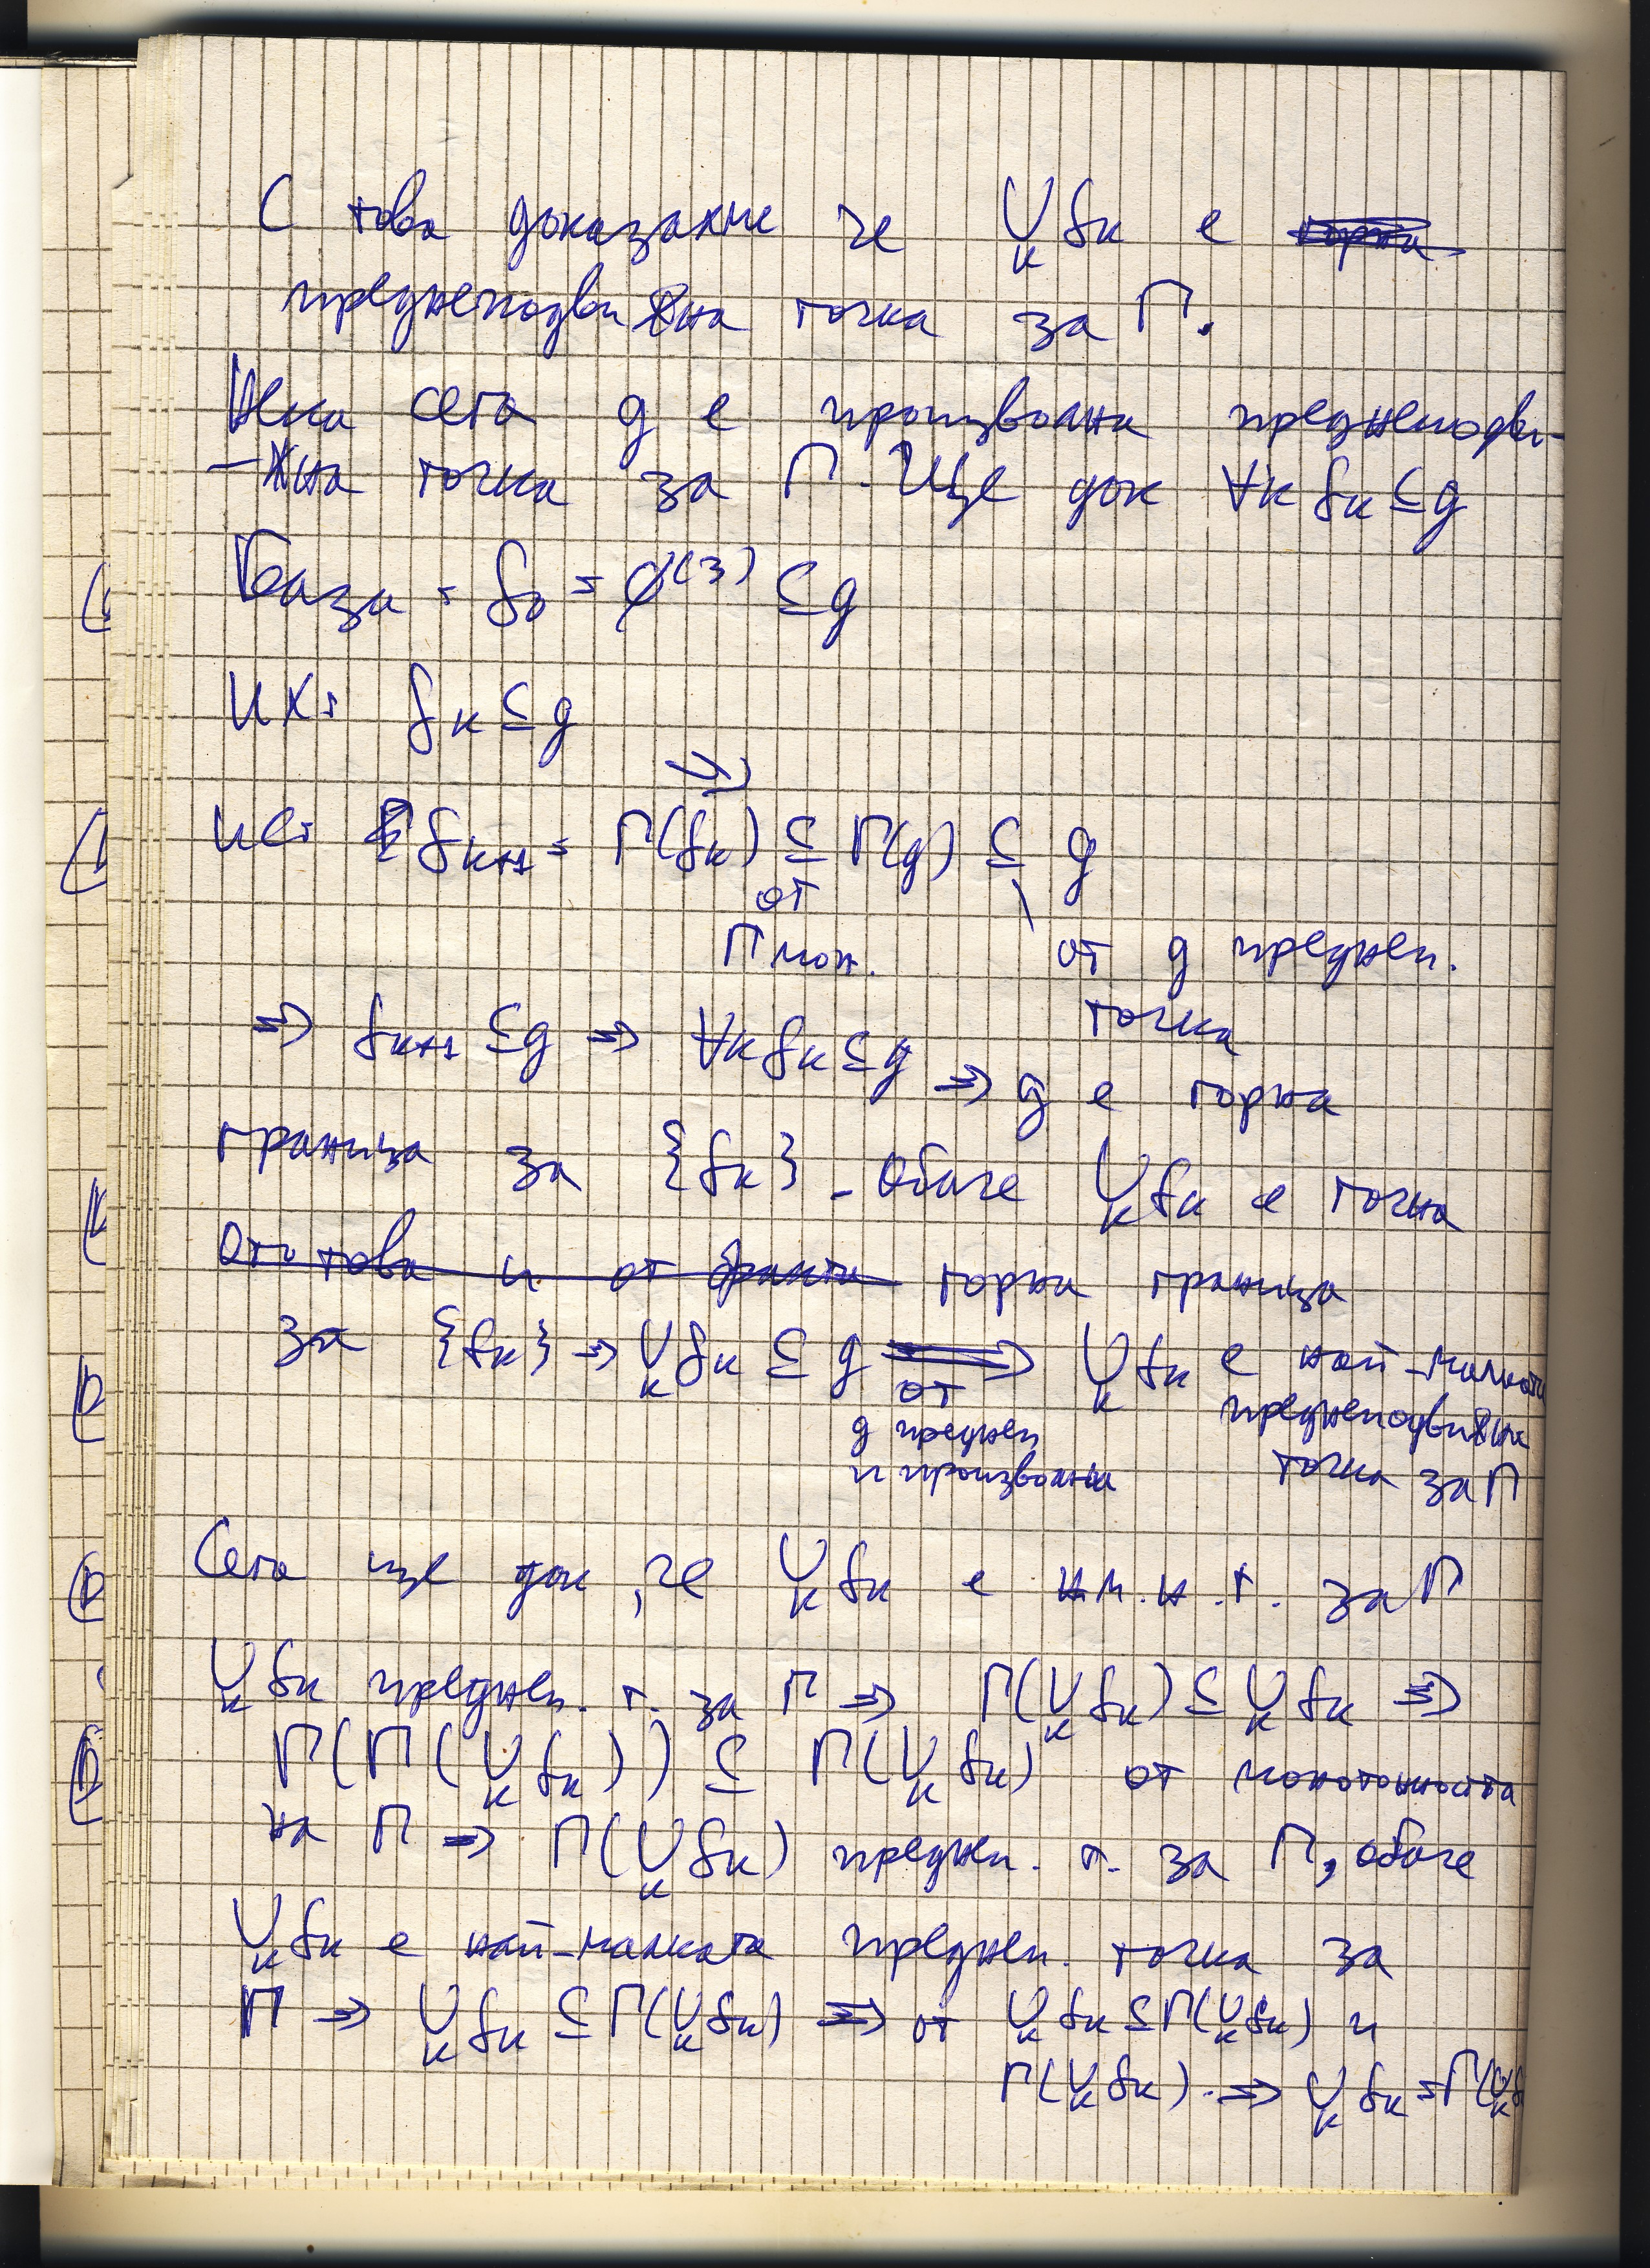 С това доказахме че ∪ₖ fₖ е
преднеподвижна точка за Г.
Нека сега g е произволна преднеподви-
-жна точка за Г. Ще док ∀k fₖ ⊆ g
База: f₀ = ∅⁽³⁾ ⊆ g
ИХ: fₖ ⊆ g
⇒
ИС: fₖ₊₁ = Г(fₖ) ⊆ Г(g) ⊆ g
от
Г мон. от g преднеп.
точка
⇒ fₖ₊₁ ⊆ g ⇒ ∀k fₖ ⊆ g ⇒ g е горна
граница за {fₖ}. Обаче ∪ₖ fₖ е точна
От това и от факта горна граница
за {fₖ} → ∪ₖ fₖ ⊆ g ⟹ ∪ₖ fₖ е най-малката
от преднеподвижна
g преднеп
и произволна точка за Г
Сега ще док, че ∪ₖ fₖ е н.м.н.т. за Г
∪ₖ fₖ преднеп. т. за Г ⇒ Г(∪ₖ fₖ) ⊆ ∪ₖ fₖ ⇒
Г(Г(∪ₖ fₖ)) ⊆ Г(∪ₖ fₖ) от монотонността
на Г ⇒ Г(∪ₖ fₖ) преднеп. т. за Г, обаче
∪ₖ fₖ е най-малката преднеп. точка за
Г ⇒ ∪ₖ fₖ ⊆ Г(∪ₖ fₖ) ⇒ от ∪ₖ fₖ ⊆ Г(∪ₖ fₖ) и
Г(∪ₖ fₖ). ⇒ ∪ₖ fₖ = Г(∪ₖ f